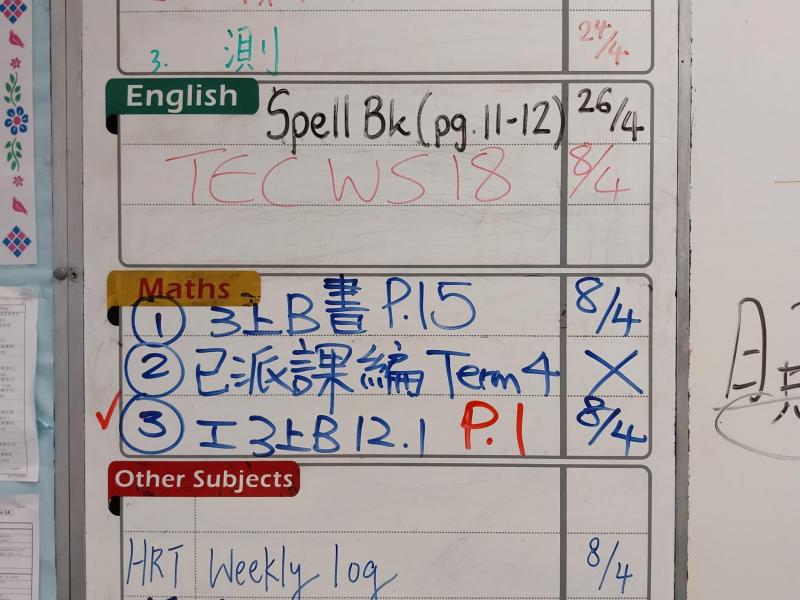 3. 測 24/4
English
Spell Bk (pg. 11-12) 26/4
TEC WS 18 8/4
Maths
① 3上B書 P.15 8/4
② 已派課編 Term 4 X
✓ ③ 工3上B 12.1 P.1 8/4
Other Subjects
HRT Weekly log 8/4